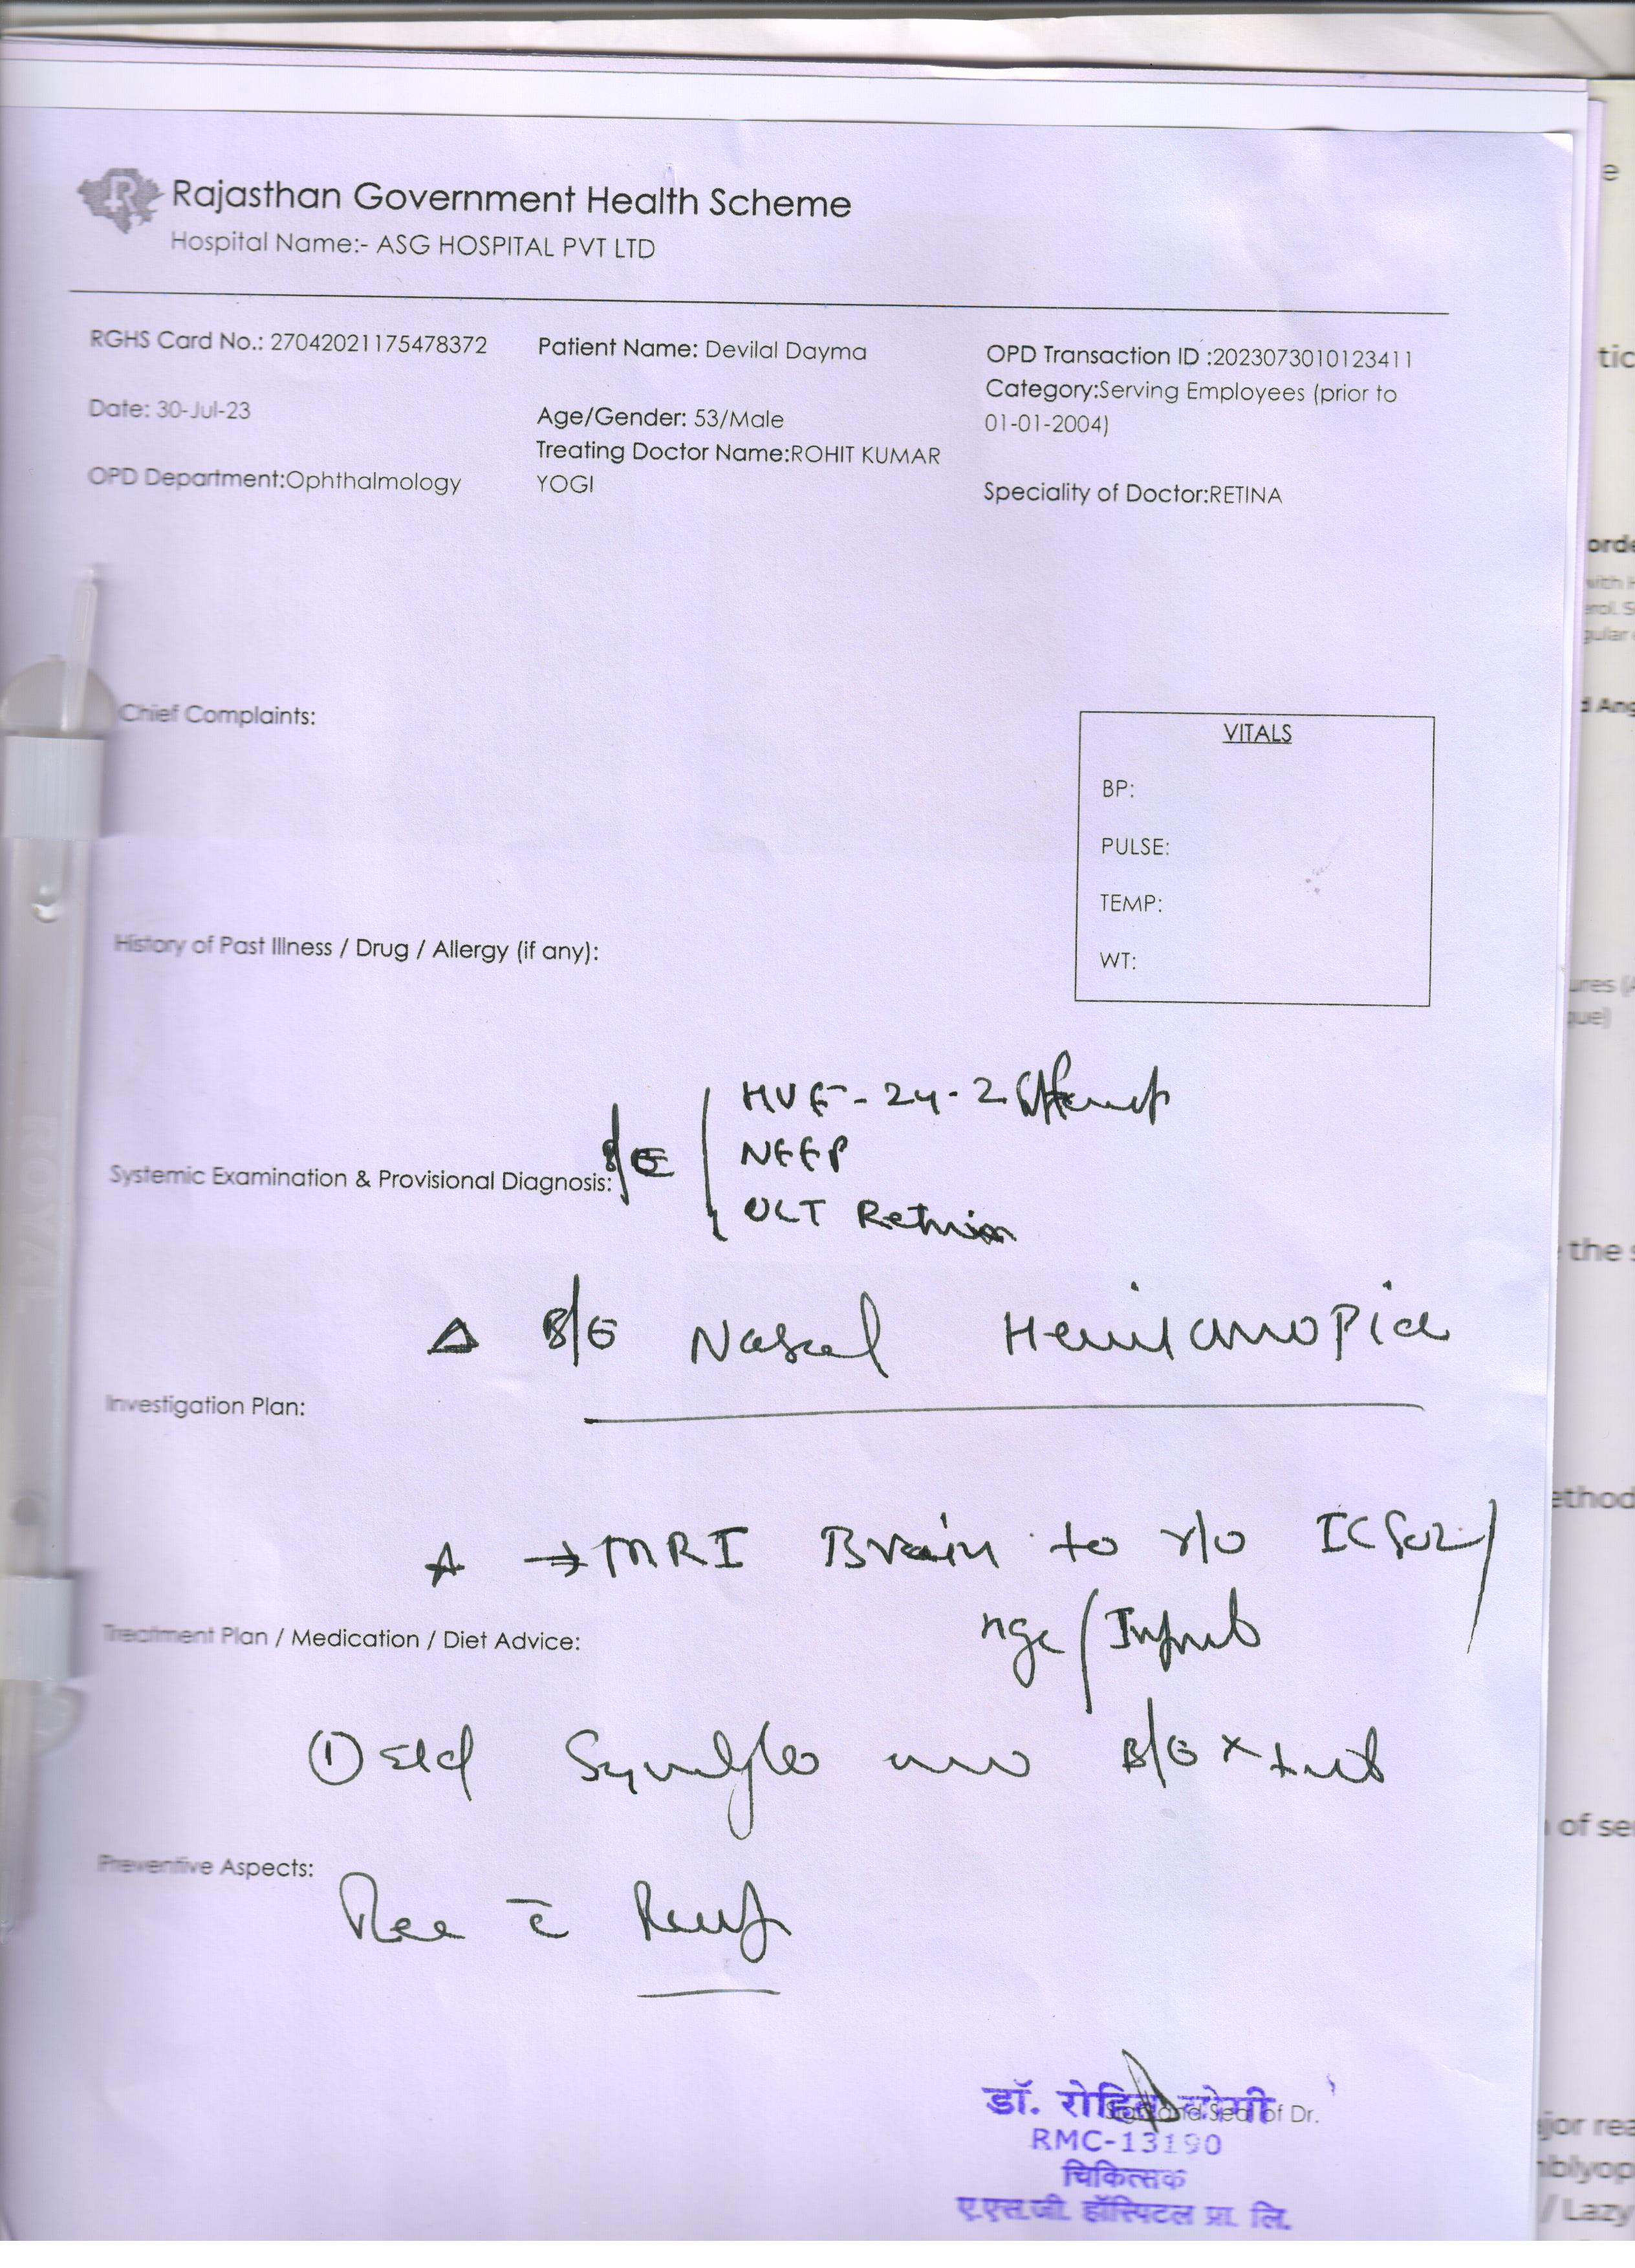 Rajasthan Government Health Scheme
Hospital Name:- ASG HOSPITAL PVT LTD
RGHS Card No.: 27042021175478372
Patient Name: Devilal Dayma
OPD Transaction ID :2023073010123411
Category:Serving Employees (prior to
01-01-2004)
Date: 30-Jul-23
Age/Gender: 53/Male
Treating Doctor Name:ROHIT KUMAR
YOGI
OPD Department:Ophthalmology
Speciality of Doctor:RETINA
Chief Complaints:
VITALS
BP:
PULSE:
TEMP:
WT:
History of Past Illness / Drug / Allergy (if any):
HVF - 24-2
Systemic Examination & Provisional Diagnosis:
B/E
OCT Retina
Δ B/E Nasal Hemianopia
Investigation Plan:
→ MRI Brain to r/o ICSOL /
Hge / Infarct
Treatment Plan / Medication / Diet Advice:
① E/d B/E x
Preventive Aspects:
Rev c̄
Sign and Seal of Dr.
डॉ. रोहित योगी
RMC-13190
चिकित्सक
ए.एस.जी. हॉस्पिटल प्रा. लि.
ROYAL
e
tic
orde
with H
erol. S
gular
d Ang
ures (A
que)
the s
ethod
of se
jor rea
blyop
/ Lazy